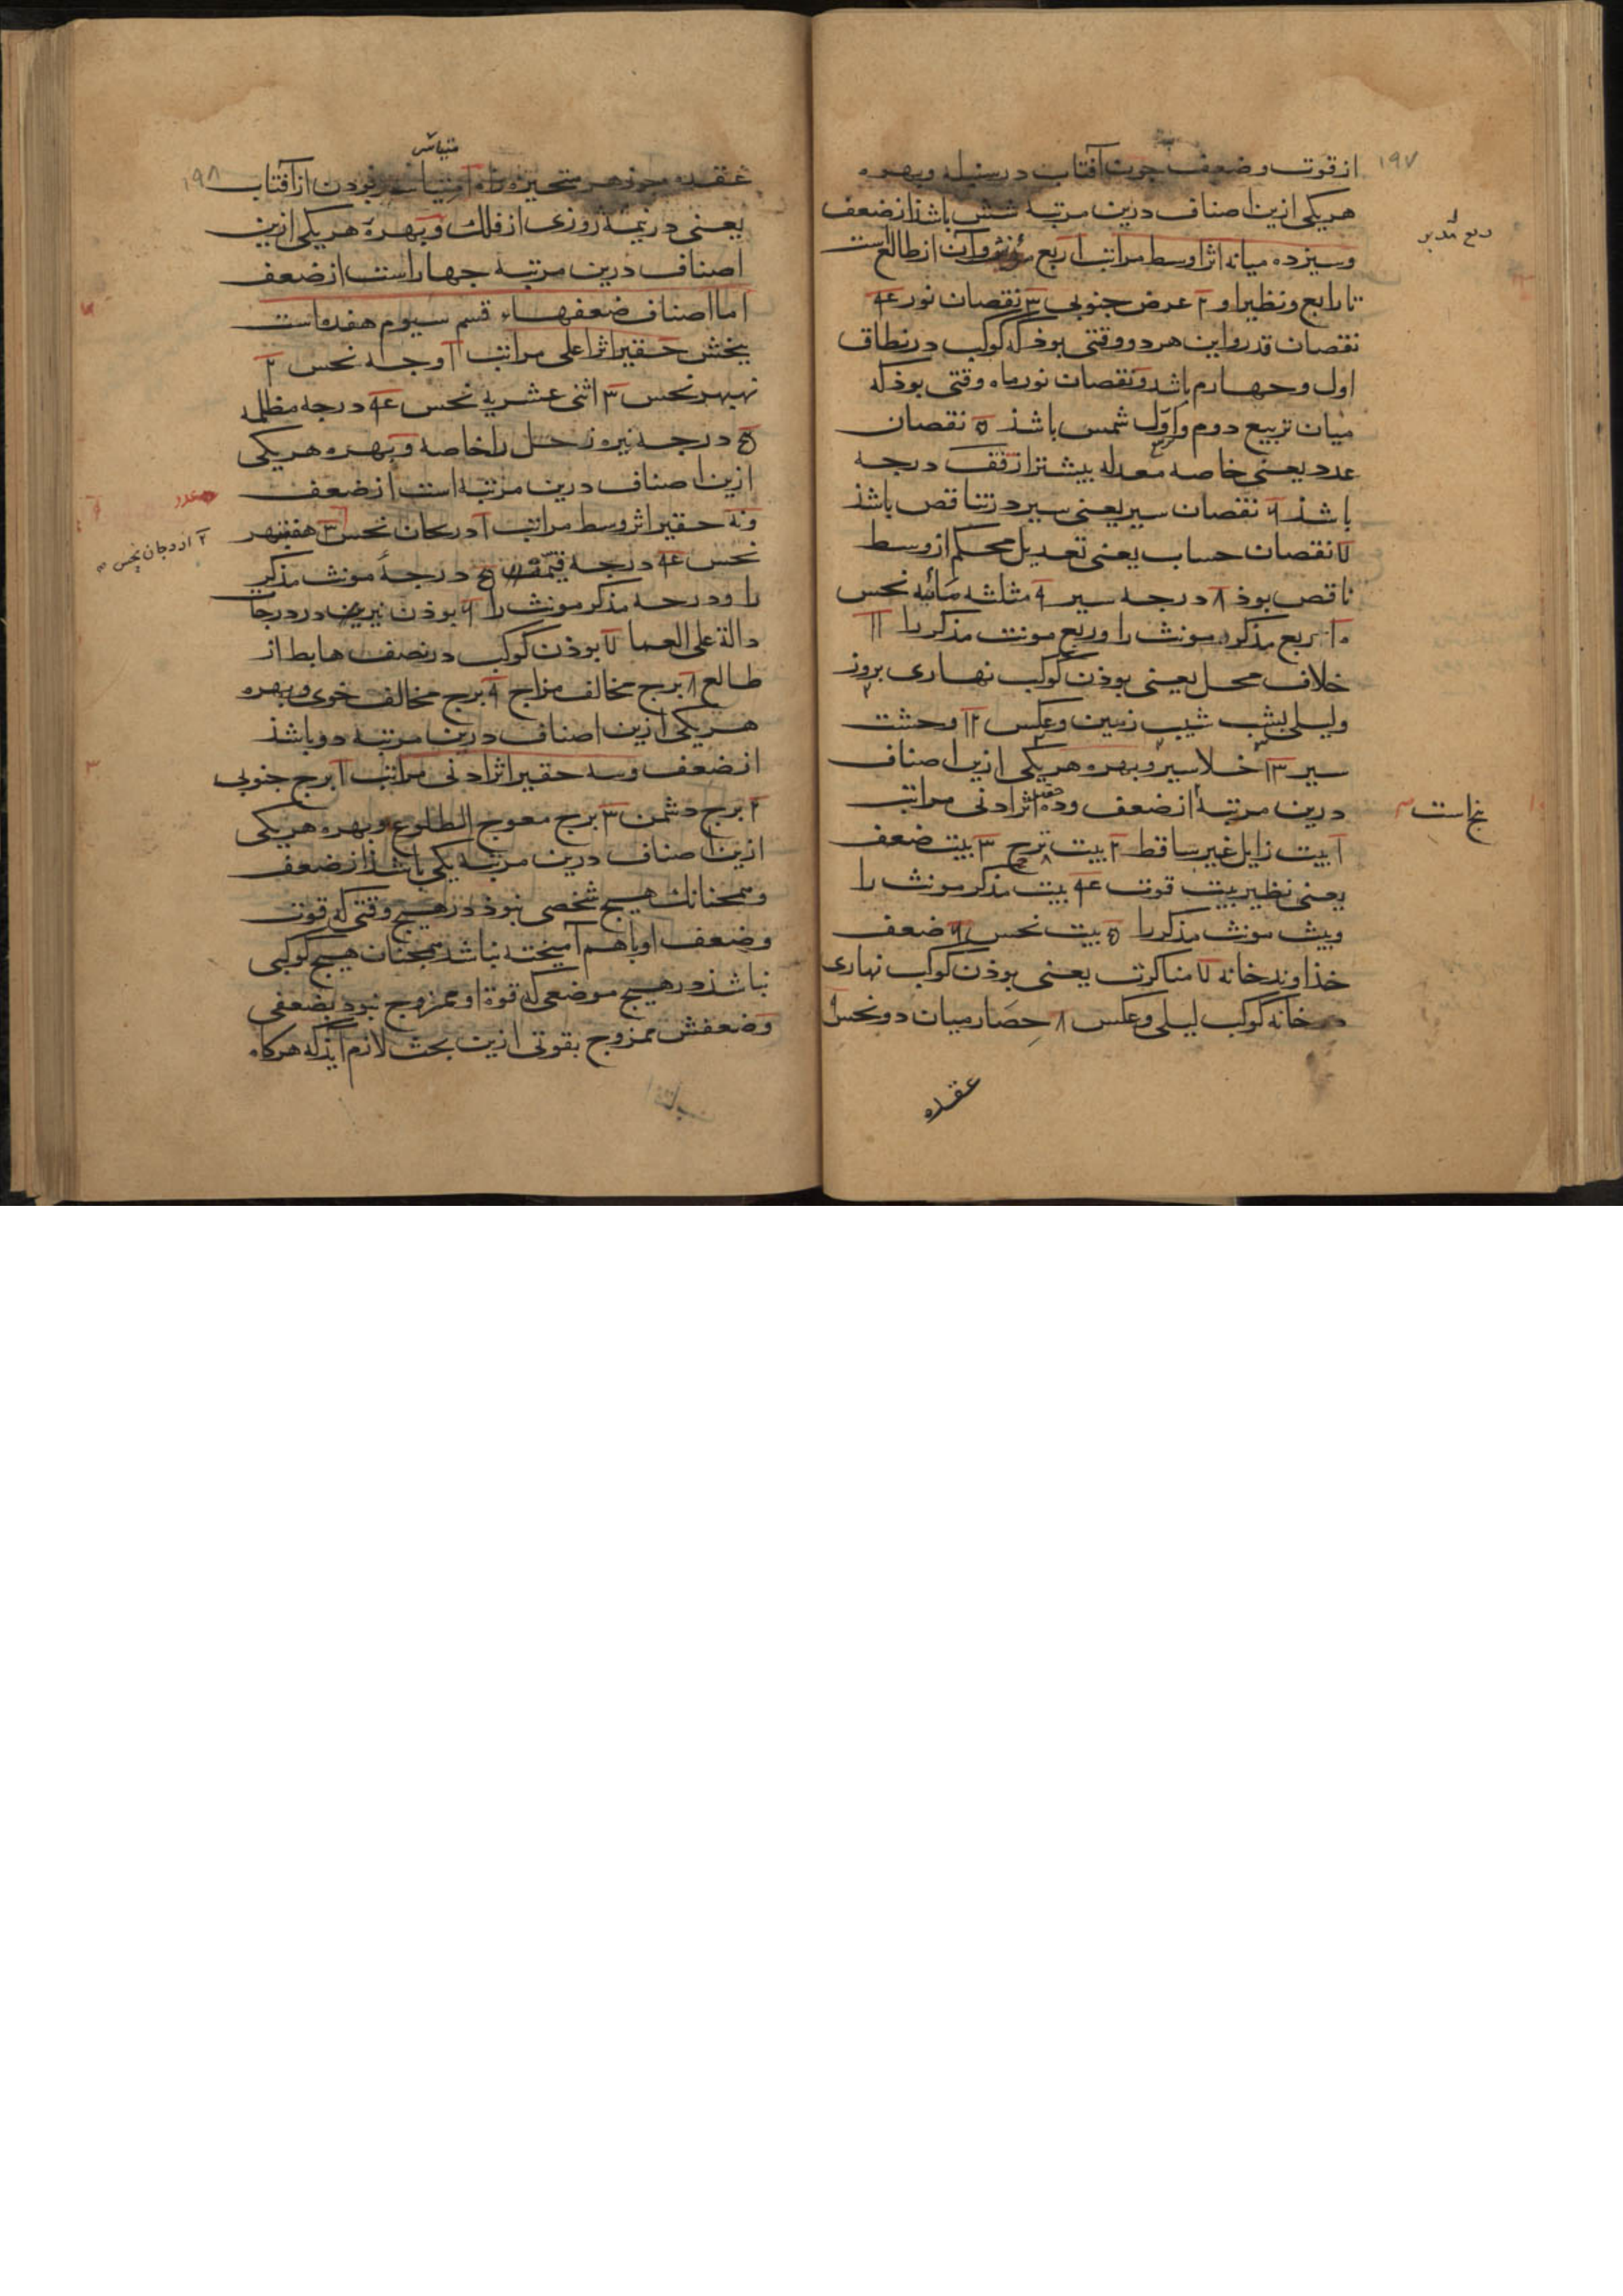 ۱۹۷
از قوت و ضعف چون آفتاب در سنبله و بهره
هریکی ازین اصناف درین مرتبه شش باشذ از ضعف
ربع مدبر
وسیزده میانه اثر اوسط مراتب ا ربع مؤنث وآن از طالع است
تا رابع ونظیر او ۲ عرض جنوبی ۳ نقصان نور ۴
نقصان قدر واین هر دو وقتی بوذ که کوکب در نطاق
اول وچهارم باشد ونقصان نور ماه وقتی بوذ که
میان تربیع دوم واول شمس باشذ ۵ نقصان
عدد یعنی خاصه معدله بیشتر از قف درجه
باشذ ۶ نقصان سیر یعنی سیر در تناقص باشذ
۷ نقصان حساب یعنی تعدیل محکم از وسط
ناقص بوذ ۸ درجه سیر ۹ مثلثه مائیه نحس
۱۰ ربع مذکر مونث را وربع مونث مذکر را ۱۱
خلاف محل یعنی بوذن کوکب نهاری بروز
ولیلی بشب شیب زمین وعکس ۱۲ وحشت
سیر ۱۳ خلا سیر وبهره هریکی ازین اصناف
درین مرتبه از ضعف وده حقیر اثر ادنی مراتب
پنج است
ا بیت زایل غیر ساقط ۲ بیت ترح ۳ بیت ضعف
یعنی نظیر بیت قوت ۴ بیت مذکر مونث را
وبیت مونث مذکر را ۵ بیت نحس ۶ ضعف
خذاوند خانه ۷ مناکرت یعنی بوذن کوکب نهاری
در خانه کوکب لیلی وعکس ۸ حصار میان دو نحس
عقده
۱۹۸
عقده جوزهر متحیره را
یعنی در نیمه روزی از فلک وبهره هریکی ازین
اصناف درین مرتبه چهار است از ضعف
اما اصناف ضعفهاء قسم سیوم هفده است
پنجش حقیر اثر اعلی مراتب ا وجه نحس ۲
نهبهر نحس ۳ اثنی عشریه نحس ۴ درجه مظلمه
۵ درجه نیره زحل را خاصه وبهره هریکی
ازین اصناف درین مرتبه است از ضعف
ونه حقیر اثر وسط مراتب ا دریجان نحس ۳ هفتبهر
۲ ازدجان نحس
نحس ۴ درجه قیمه ۵ درجهٔ مونث مذکر
را ودرجه مذکر مونث را ۶ بوذن نیرین در درجات
دالة علی العما ۷ بوذن کوکب در نصف هابط از
طالع ۸ برج مخالف مزاج ۹ برج مخالف خوی وبهره
هریکی ازین اصناف درین مرتبه دو باشذ
از ضعف وسه حقیر اثر ادنی مراتب ا برج جنوبی
۲ برج دشمن ۳ برج معوج الطلوع وبهره هریکی
ازین اصناف درین مرتبه یکی باشذ از ضعف
وهمچنانک هیچ شخصی نبوذ در هیچ وقتی که قوت
وضعف او باهم آمیخته نباشد همچنان هیچ کوکبی
نباشذ در هیچ موضعی که قوة او ممزوج نبود بضعفی
وضعفش ممزوج بقوتی ازین بحث لازم آیذ که هرکاه